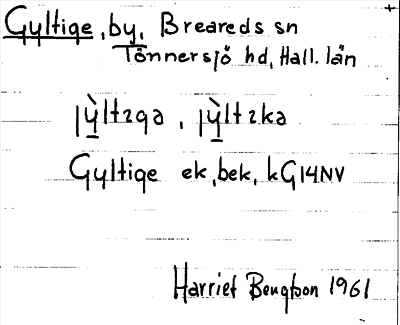 Gyltige, by, Breareds sn
Tönnersjö hd, Hall. län
Gyltige ek, bek, kG14NV
Harriet Bengtson 1961